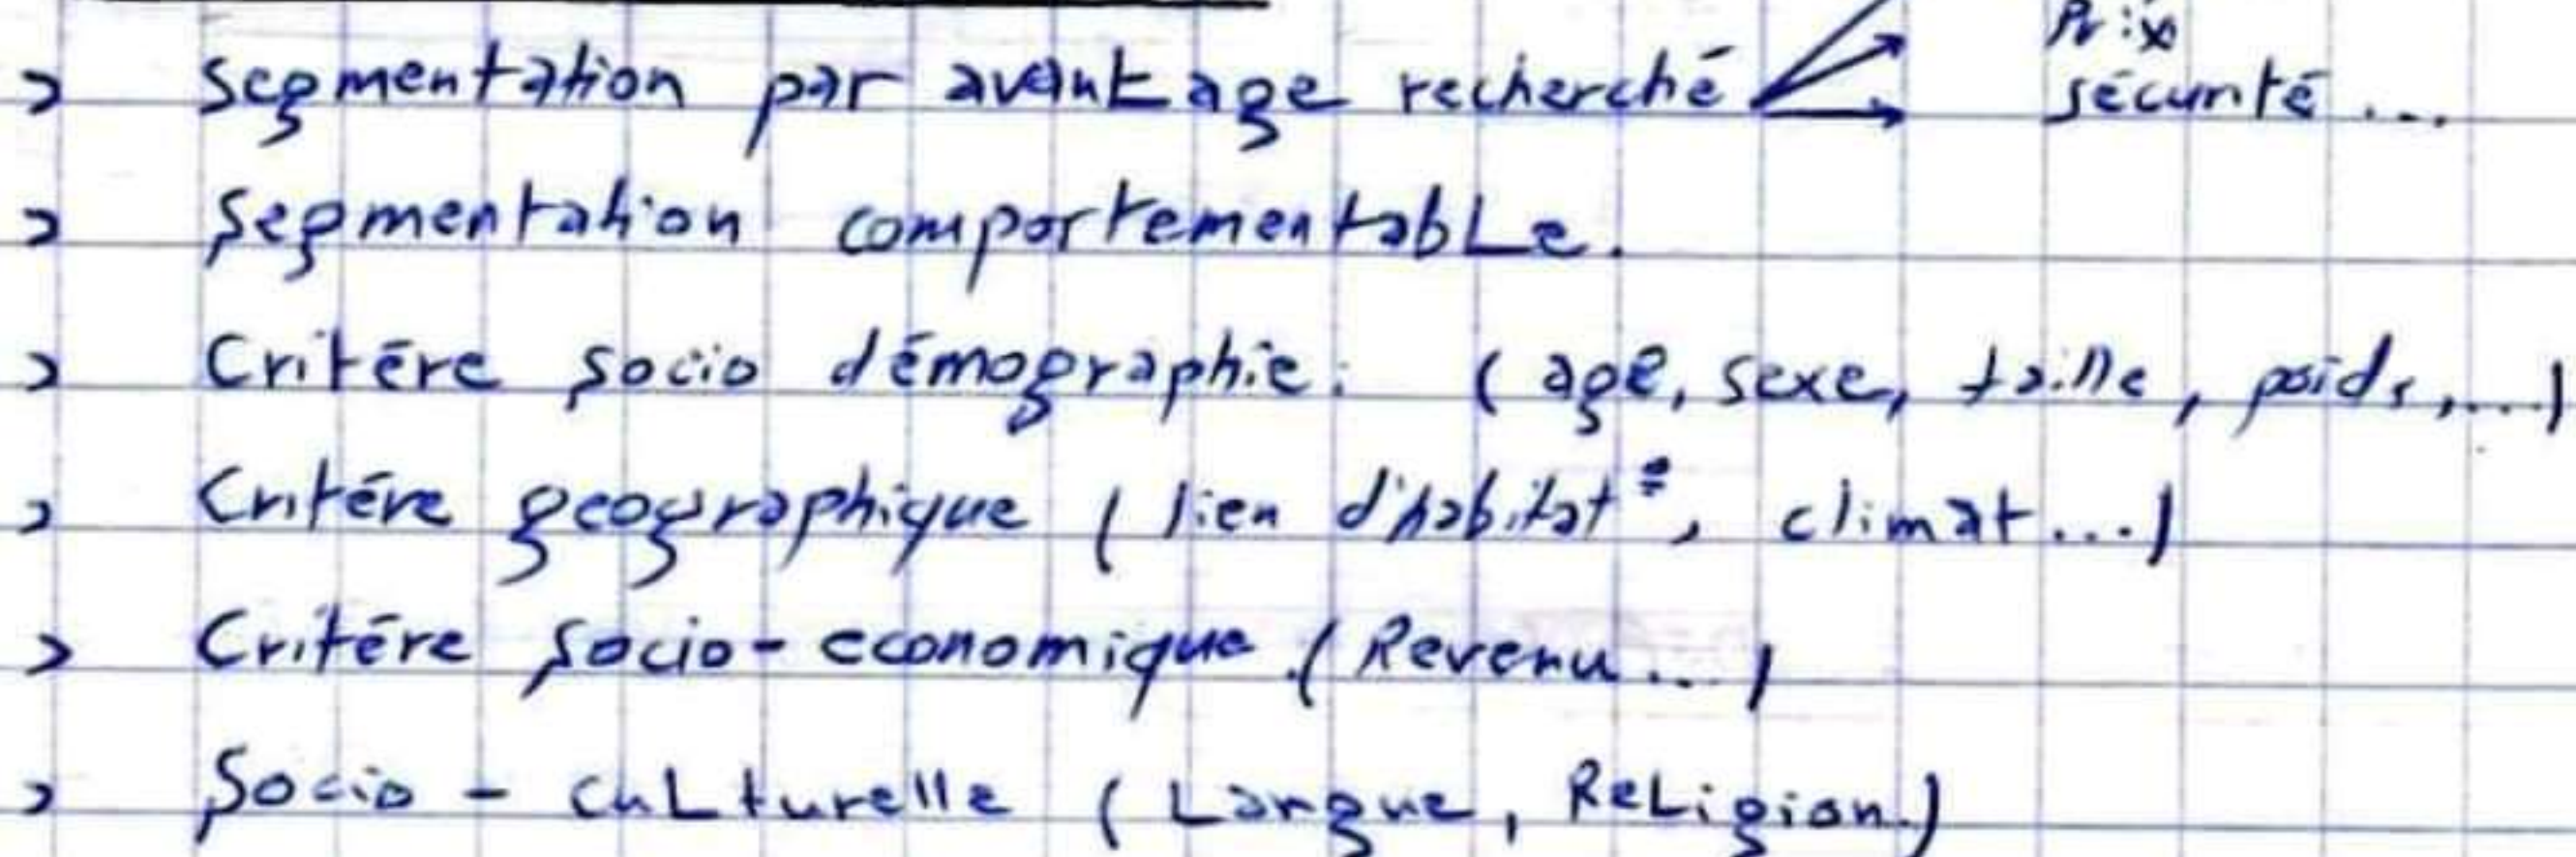 Prix
> Segmentation par avantage recherché sécurité ...
> Segmentation comportementable.
> Critère socio démographie : (age, sexe, taille, poids, ...)
> Critére geographique (lien d'habitat°, climat...)
> Critére socio-economique (Revenu...)
> Socio - culturelle (Langue, Religion.)